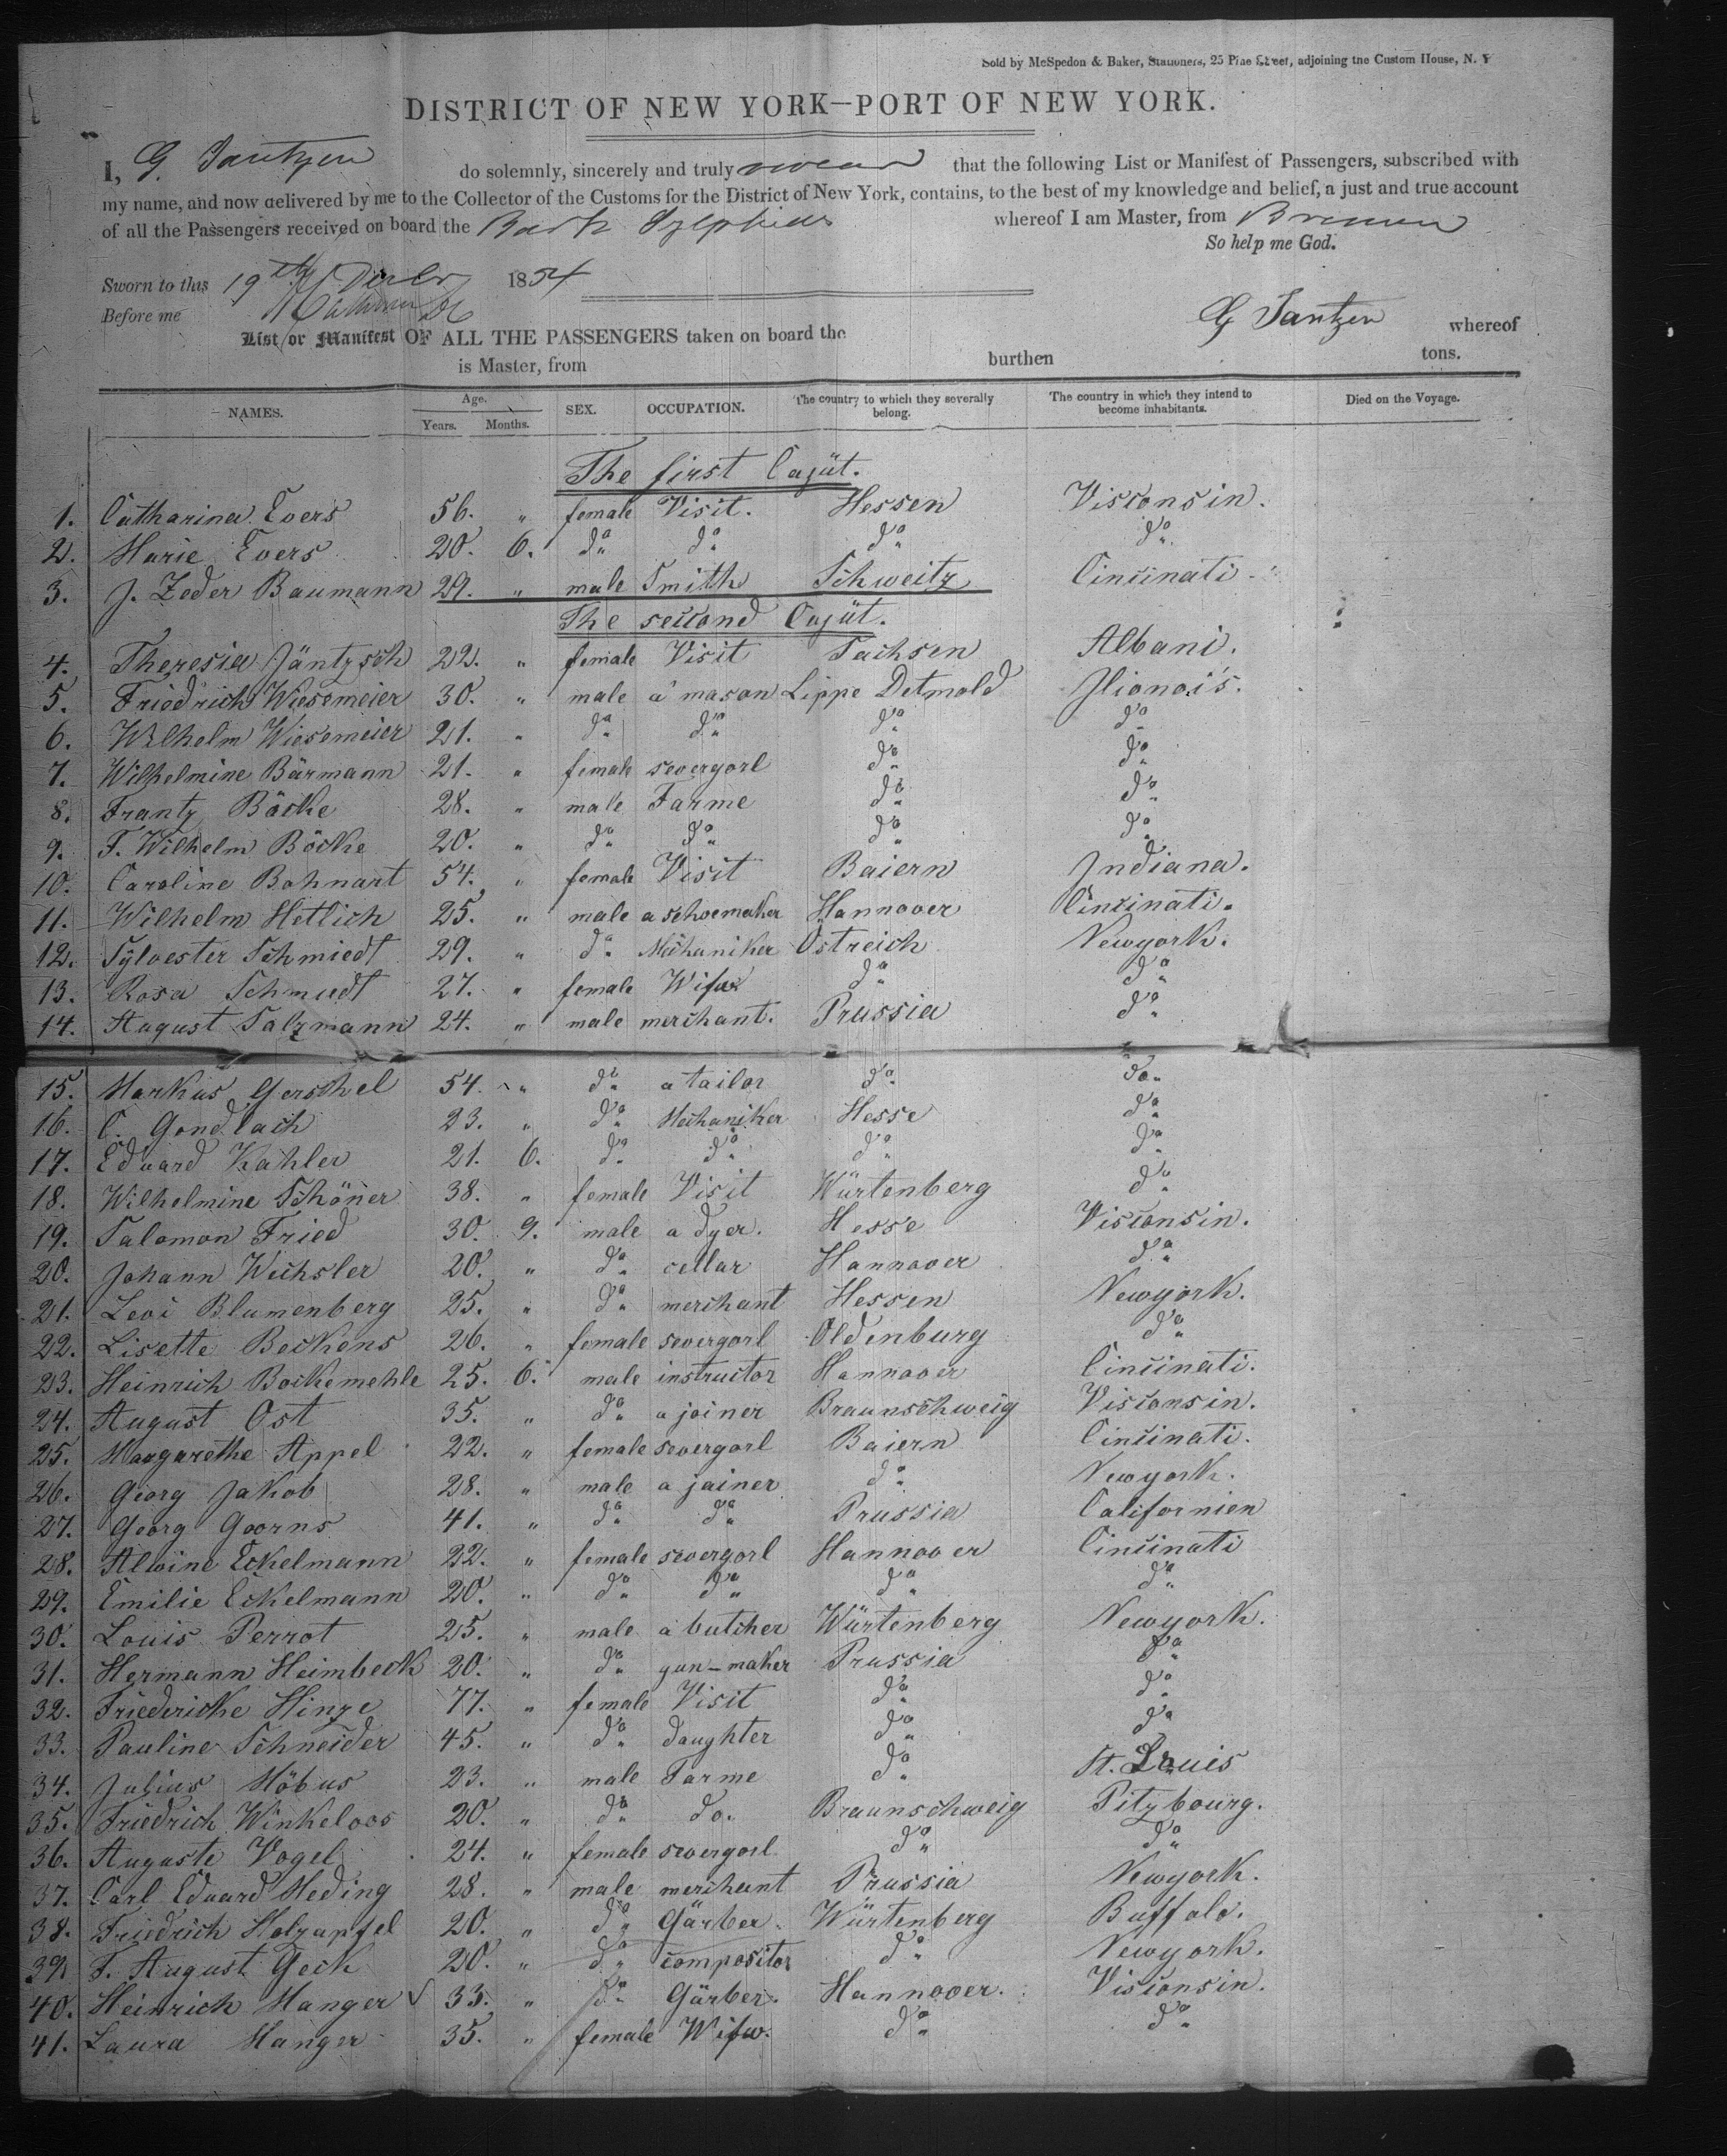 Sold by McSpedon & Baker, Stationers, 25 Pine Street, adjoining the Custom House, N. Y
DISTRICT OF NEW YORK—PORT OF NEW YORK.
I, G. Jantzen do solemnly, sincerely and truly swear that the following List or Manifest of Passengers, subscribed with
my name, and now delivered by me to the Collector of the Customs for the District of New York, contains, to the best of my knowledge and belief, a just and true account
of all the Passengers received on board the Bark Sylphide whereof I am Master, from Bremen
So help me God.
Sworn to this 19th 1854
Before me
G Jantzen
List or Manifest OF ALL THE PASSENGERS taken on board the whereof
is Master, from burthen tons.
NAMES. Age. Years. Months. SEX. OCCUPATION. The country to which they severally belong. The country in which they intend to become inhabitants. Died on the Voyage.
The first Cajüt.
1. Catharina Evers 56. " female Visit. Hessen Visconsin.
2. Marie Evers 20. 6. do do do do
3. J. Zeder Baumann 29. " male Smith Schweitz Cincinati.
The second Cajüt.
4. Theresia Jäntzsch 22. " female Visit Sachsen Albani.
5. Friedrich Wiesemeier 30. " male a mason Lippe Detmold Jlionois.
6. Wilhelm Wiesemeier 21. " do do do do
7. Wilhelmine Bärmann 21. " female severgorl do do
8. Frantz Böcke 28. " male Farme do do
9. F. Wilhelm Böcke 20. " do do do do
10. Caroline Bohnart 54. " female Visit Baiern Jndiana.
11. Wilhelm Hetlich 25. " male a schoemaker Hannover Cincinati.
12. Sylvester Schmiedt 29. " do Mechaniker Östreich Newyork.
13. Rosa Schmiedt 27. " female Wifw do do
14. August Salzmann 24. " male merchant. Prussia do
15. Markus Gerschel 54. " do a tailor do do
16. C. Gondlach 23. " do Mechaniker Hesse do
17. Eduard Kahler 21. 6. do do do do
18. Wilhelmine Schöner 38. " female Visit Würtenberg do
19. Salomon Fried 30. 9. male a dyer. Hesse Visconsin.
20. Johann Wechsler 20. " do cellar Hannover do
21. Levi Blumenberg 25. " do merchant Hessen Newyork.
22. Lisette Beckens 26. " female severgorl Oldenburg do
23. Heinrich Bockemehle 25. 6. male instructor Hannover Cincinati.
24. August Ost 35. " do a joiner Braunschweig Visconsin.
25. Margarethe Appel 22. " female severgorl Baiern Cincinati.
26. Georg Jakob 28. " male a jainer do Newyork.
27. Georg Goorns 41. " do do Prussia Californien
28. Alwine Eckelmann 22. " female severgorl Hannover Cincinati
29. Emilie Eckelmann 20. " do do do do
30. Louis Perrot 25. " male a butcher Würtenberg Newyork.
31. Hermann Heimbeck 20. " do gun-maker Prussia do
32. Friedericke Hinze 77. " female Visit do do
33. Pauline Schneider 45. " do daughter do do
34. Julius Möbus 23. " male Farme do St. Louis
35. Friedrich Winkeloos 20. " do do. Braunschweig Pitzbourg.
36. Auguste Vogel 24. " female severgorl do do
37. Carl Eduard Heding 28. " male merchant Prussia Newyork.
38. Friedrich Holzapfel 20. " do Gärber. Würtenberg Buffalo.
39. F. August Geck 20. " do compositor do Newyork.
40. Heinrich Manger 33. " do Gärber. Hannover. Visconsin.
41. Laura Manger 35. " female Wifw. do do